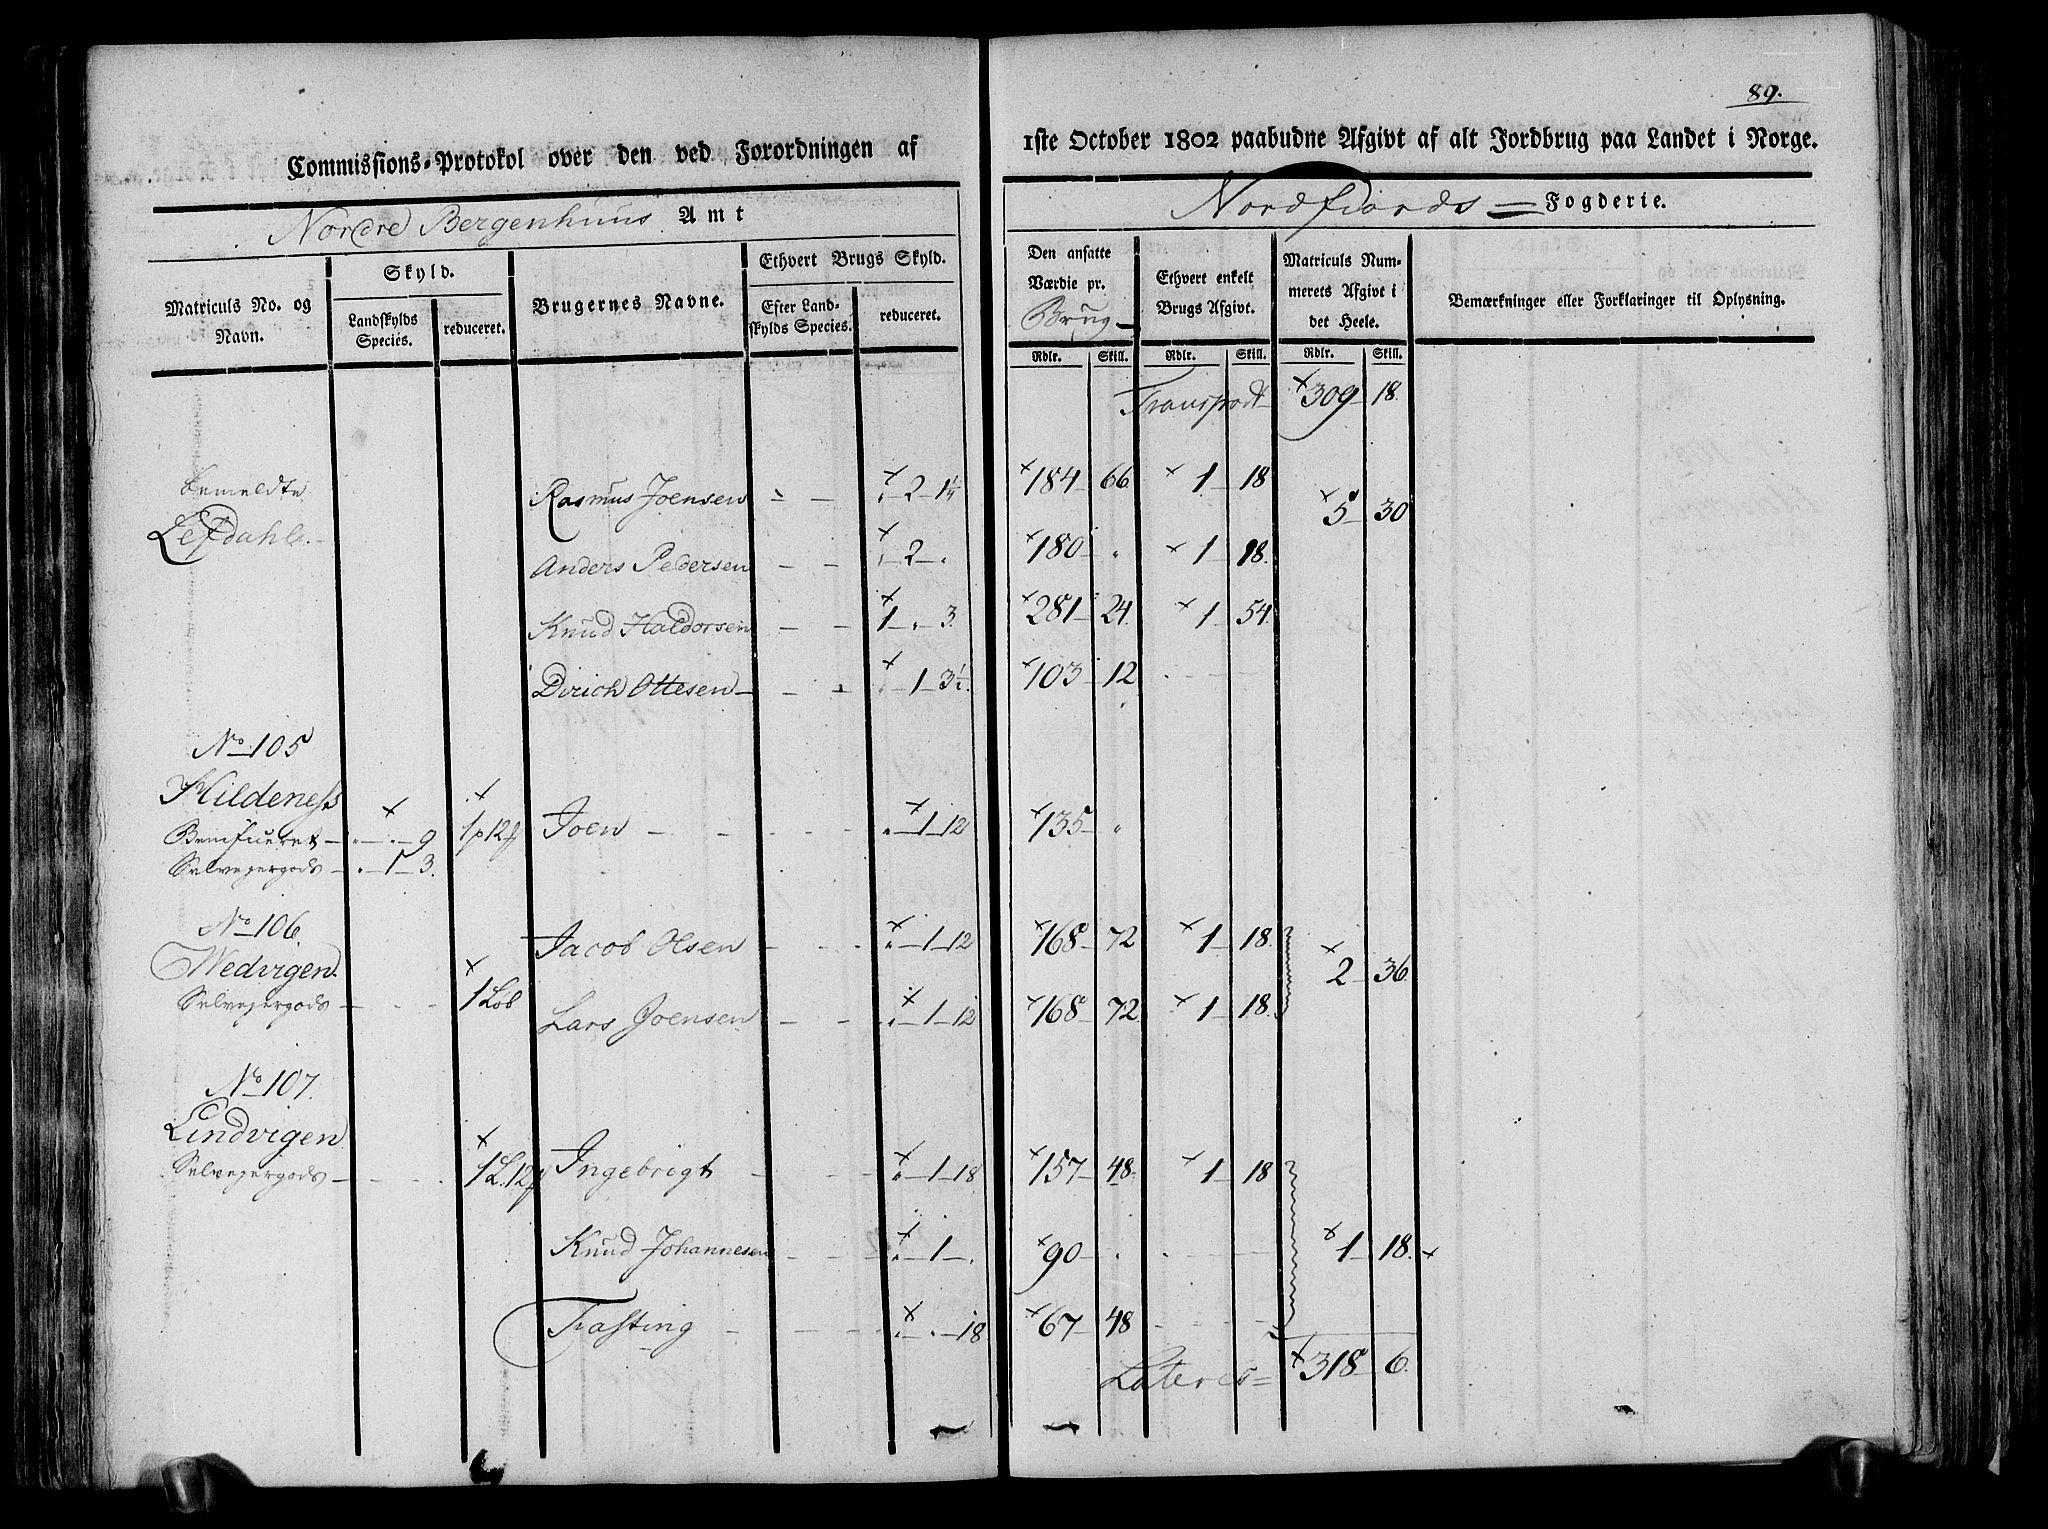 89.
Commissions-Protokol over den ved Forordningen af 1ste October 1802 paabudne Afgivt af alt Jordbrug paa Landet i Norge.
Nordre Bergenhuus Amt Nordfiords Fogderie.
Matriculs No. og Navn. Skyld. Landskylds Species. reduceret. Brugernes Navne. Ethvert Brugs Skyld. Efter Landskylds Species. reduceret.
Den ansatte Værdie pr. Brug Ethvert enkelt Brugs Afgivt. Matriculs Nummerets Afgivt i det Heele. Bemærkninger eller Forklaringer til Oplysning.
Rdlr. Skill. Rdlr. Skill. Rdlr. Skill.
Transport 309 18.
bemeldte Rasmus Joensen 2 1¼ 184 66 1 18 5 30
Lefdahl.
Anders Pedersen 2 180 1 18.
Knud Haldorsen 1 3. 281 24 1 54
Dirich Ottesen 1 3½ 103 12
No 105
Hildeness
Benificeret 9 1p 12 Joen 1 12 135
Selvejergods 1 3.
No 106 Jacob Olsen 1 12 168 72 1 18. 2 36.
Wedvigen.
Selvejergods 1 Lob Lars Joensen 1 12 168 72 1 18.
No 107.
Lindvigen
Selvejergods 1 L. 12 Ingebrigt 1 18 157 48 1 18
Knud Johannesen 1 90 1 18.
Trasting 18 67 48
Lateris 318 6.